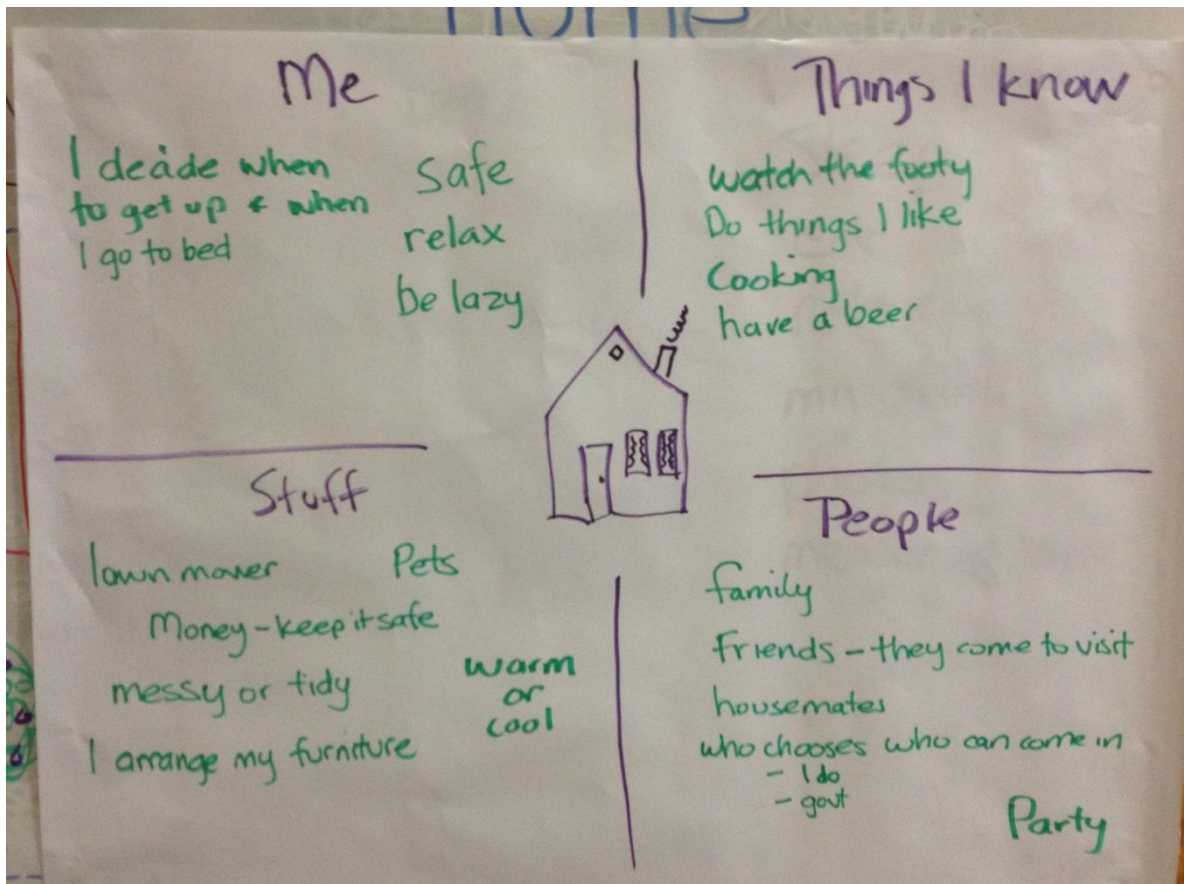 Home
Me
I decide when
to get up & when
I go to bed
safe
relax
be lazy
Things I know
watch the footy
Do things I like
Cooking
have a beer
Stuff
lawn mower
Pets
Money - keep it safe
messy or tidy
warm
or
cool
I arrange my furniture
People
family
Friends - they come to visit
housemates
who chooses who can come in
- I do
- govt
Party